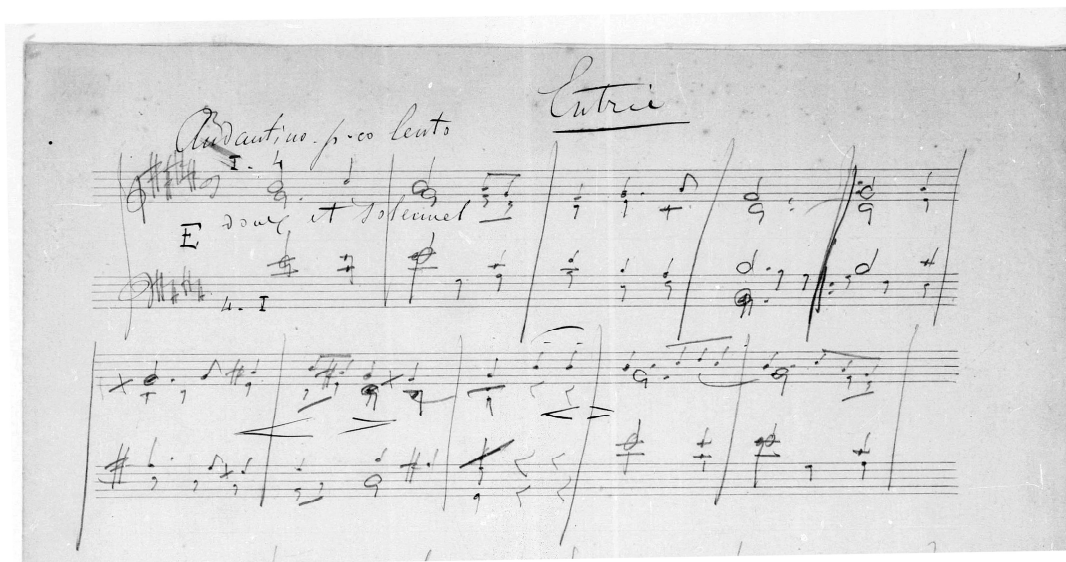 Entrée
Andantino poco lento
I. 4
E doux et solennel
4. I